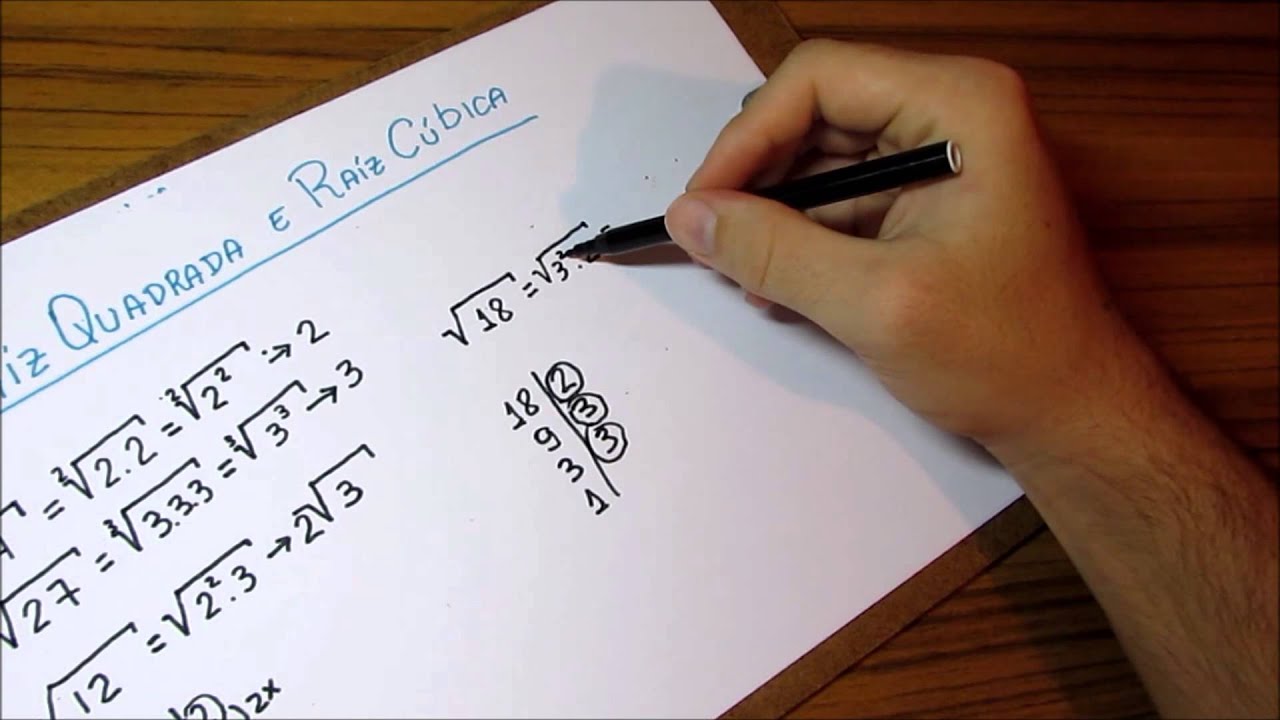 QUADRADA E RAÍZ CÚBICA
= ²√2.2 = ²√2² → 2
√27 = ³√3.3.3 = ³√3³ → 3
√12 = √2².3 → 2√3
2x
√18 = √3².2
18 | 2
9 | 3
3 | 3
1